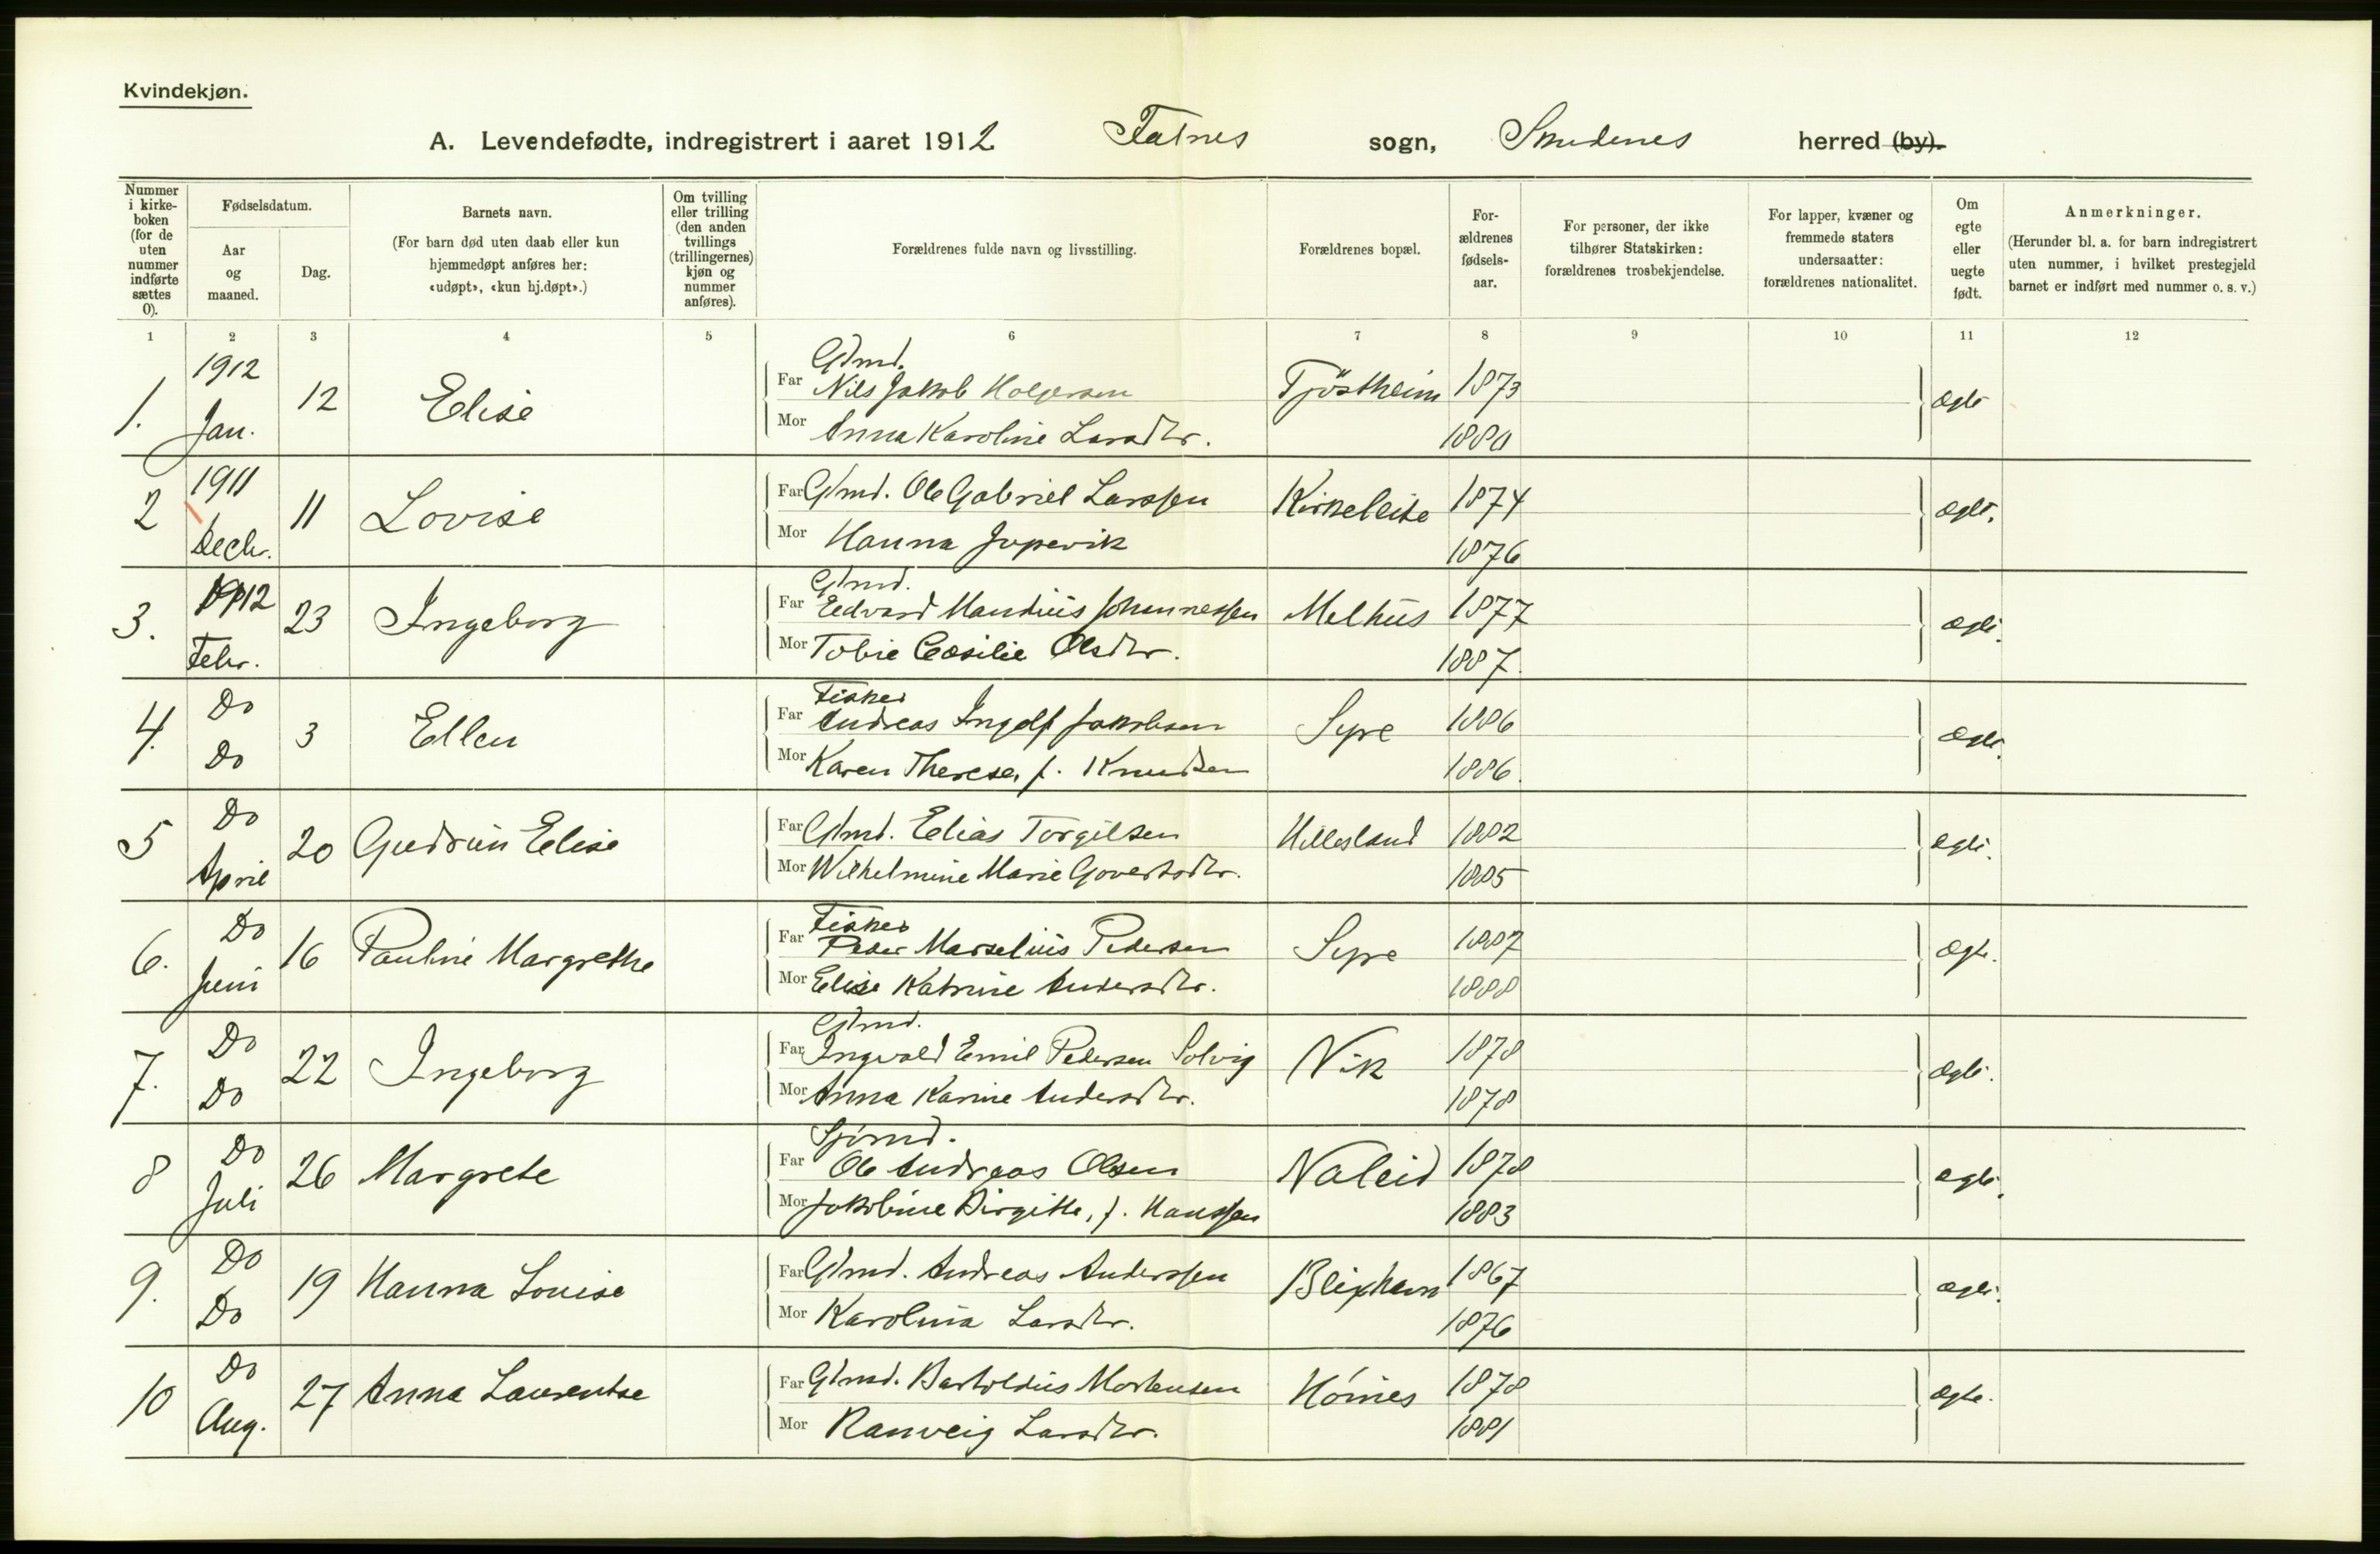 Kvindekjøn.
A. Levendefødte, indregistrert i aaret 1912 Falnes sogn, Skudenes herred (by).
Nummer i kirkeboken (for de uten nummer indførte sættes 0).
Fødselsdatum.
Aar og maaned.
Dag.
Barnets navn.
(For barn død uten daab eller kun hjemmedøpt anføres her: «udøpt», «kun hj.døpt».)
Om tvilling eller trilling (den anden tvillings (trillingernes) kjøn og nummer anføres).
Forældrenes fulde navn og livsstilling.
Forældrenes bopæl.
Forældrenes fødselsaar.
For personer, der ikke tilhører Statskirken: forældrenes trosbekjendelse.
For lapper, kvæner og fremmede staters undersaatter: forældrenes nationalitet.
Om egte eller uegte født.
Anmerkninger.
(Herunder bl. a. for barn indregistrert uten nummer, i hvilket prestegjeld barnet er indført med nummer o. s. v.)
1 2 3 4 5 6 7 8 9 10 11 12
1. 1912 Jan. 12 Elise
Gbmd.
Far Nils Jakob Holgersen Tjøstheim 1873 ægte
Mor Anna Karoline Larsdtr. 1880
2 1911 Decbr. 11 Lovise
Far Gbmd. Ole Gabriel Larssen Kirkeleite 1874 ægte.
Mor Hanna 1876
3. 1912 Febr. 23 Ingeborg
Gbmd.
Far Edvard Mandius Johannessen Melhus 1877 ægte.
Mor Tobie Cecilie Olsdtr. 1887.
4. Do Do 3 Ellen
Fisker
Far Andreas Ingolf Jakobsen Syre 1886 ægte.
Mor Karen Therese, f. Knudsen 1886.
5 Do April 20 Gudrun Elise
Far Gbmd. Elias Torgilsen Hillesland 1882 ægte.
Mor Wilhelmine Marie Govertsdtr. 1885
6. Do Juni 16 Pauline Margrethe
Fisker
Far Peder Marselius Pedersen Syre 1887 ægte.
Mor Elise Katrine Andersdtr. 1888
7. Do Do 22 Ingeborg
Gbmd.
Far Ingvald Emil Pedersen Solvig Vik 1878 ægte.
Mor Anna Karine Andersdtr. 1878
8 Do Juli 26 Margrete
Sjømd.
Far Ole Andreas Olsen Naleid 1878 ægte.
Mor Jakobine Birgitte, f. Hanssen 1883
9. Do Do 19 Hanna Louise
Far Gbmd. Andreas Anderssen Blixhavn 1867 ægte.
Mor Karolina Larsdtr. 1876
10 Do Aug. 27 Anna Laurentse
Far Gbmd. Bartoldus Mortensen Hóines 1878 ægte.
Mor Ranveig Larsdtr. 1881